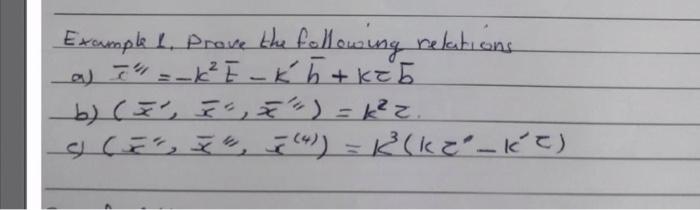 Example 1. Prove the following relations
a) x̄''' = -k² t̄ - k' h̄ + kτ b̄
b) (x̄', x̄'', x̄''') = k² τ.
c) (x̄'', x̄''', x̄⁽⁴⁾) = k³(kτ' - k'τ)